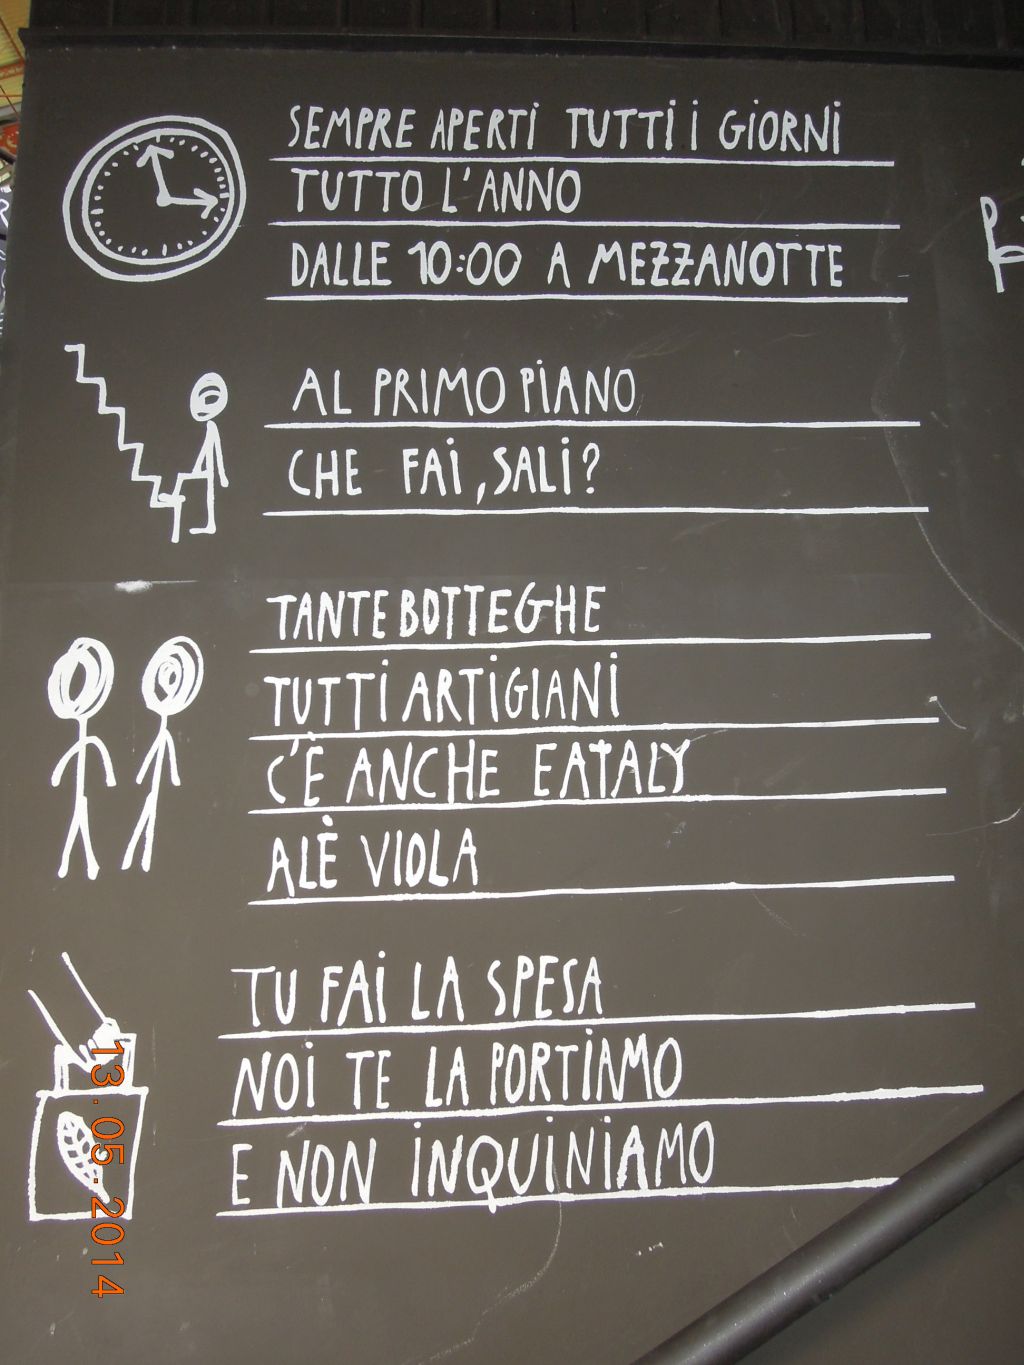 SEMPRE APERTI TUTTI I GIORNI
TUTTO L'ANNO
DALLE 10:00 A MEZZANOTTE
AL PRIMO PIANO
CHE FAI, SALI?
TANTE BOTTEGHE
TUTTI ARTIGIANI
C'È ANCHE EATALY
ALÈ VIOLA
TU FAI LA SPESA
NOI TE LA PORTIAMO
E NON INQUINIAMO
13.05.2014